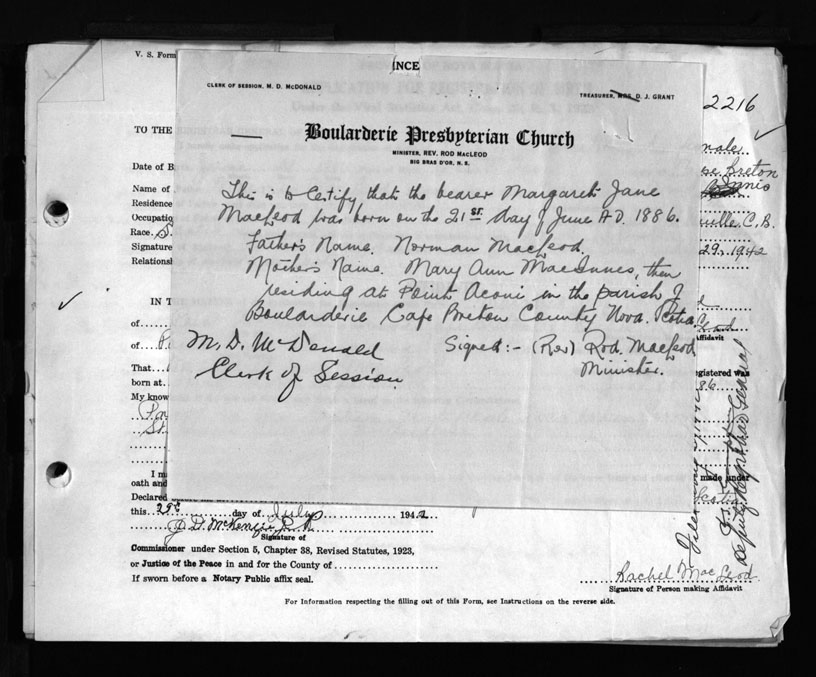 V. S. Form
INCE
CLERK OF SESSION, M. D. McDONALD
TREASURER, MRS. D. J. GRANT
2216
TO THE
Boularderie Presbyterian Church
MINISTER, REV. ROD MacLEOD
BIG BRAS D'OR, N. S.
Date of B
Breton
Name of
Residence
Occupatio
ville, C. B.
Race. S
Signature
29, 1942
Relations
This is to Certify, that the bearer Margaret Jane
MacLeod was born on the 21st day of June A.D. 1886.
Father's Name. Norman MacLeod.
Mother's Name. Mary Ann MacInnes, then
residing at Point Aconi in the parish of
Boularderie Cape Breton County Nova Scotia
M. D. McDonald
Signed:- (Rev) Rod. MacLeod
Clerk of Session
Minister.
IN T
of
Affidavit
of
That
egistered was
born at
86
My know
I m
made under
oath and
Declared
this 29th day of July 1942
J. D. McKenzie
Signature of
Commissioner under Section 5, Chapter 38, Revised Statutes, 1923,
or Justice of the Peace in and for the County of
If sworn before a Notary Public affix seal.
Deputy Registrar General
Rachel MacLeod
Signature of Person making Affidavit
For Information respecting the filling out of this Form, see Instructions on the reverse side.